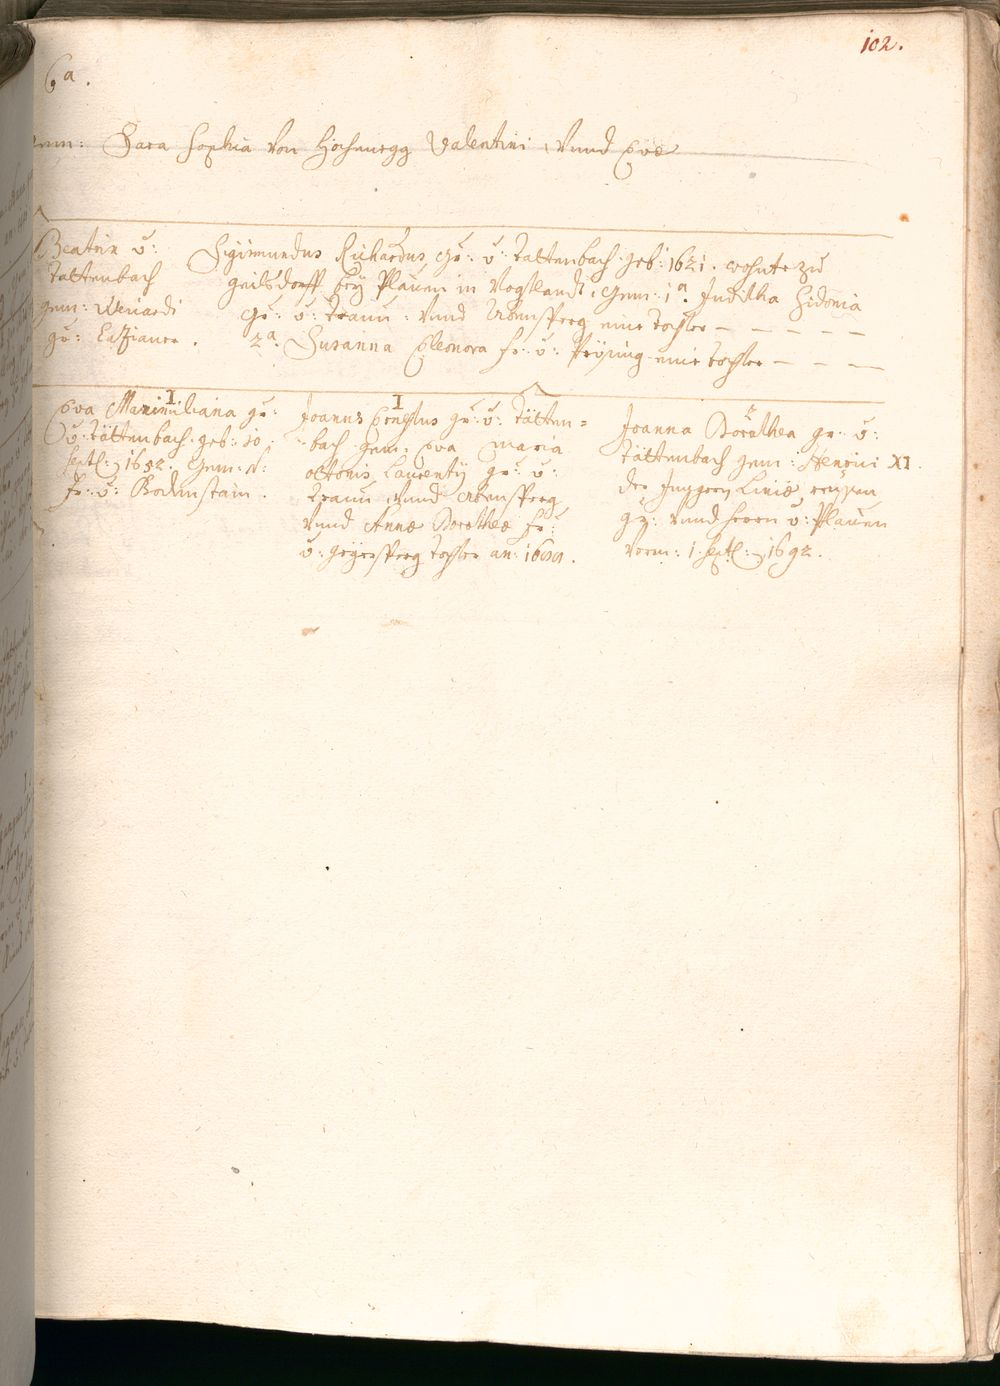 102.
6a.
Gem: Sara Sophia von Hochenegg Valentini Vnnd Evæ
Beatrix v:
Tattenbach
gem: Weicardi
gr:
Sigismundus Richardus gr: v: Tattenbach geb: 1621. wohnte zu
Geilsdorff beÿ Plauen in Vogtlandt. Gem: 1a. Juditha Sidonia
gr: v: Traun Vnnd Abensperg eine tochter — — — — —
2a. Susanna Eleonora fr: v: Prÿsing eine tochter — — —
1
Eva Maximiliana gr:
v: Tättenbach. geb: 10.
Septl: 1652. Gem: N:
fr: v: Bodenstain.
1
Joanns Ernestus gr: v: Tätten=
bach gem: Eva Maria
Ottonis Laurentÿ gr: v:
Traun Vnnd Abensperg
Vnnd Annæ Dorotheæ fr:
v: tochter an:
2
Joanna Dorothea gr: v:
Tättenbach gem: Henrici XI.
der Jüngern Liniæ reusen
gr: Vnnd herrn v: Plauen
verm: 1. Septl: 1692.